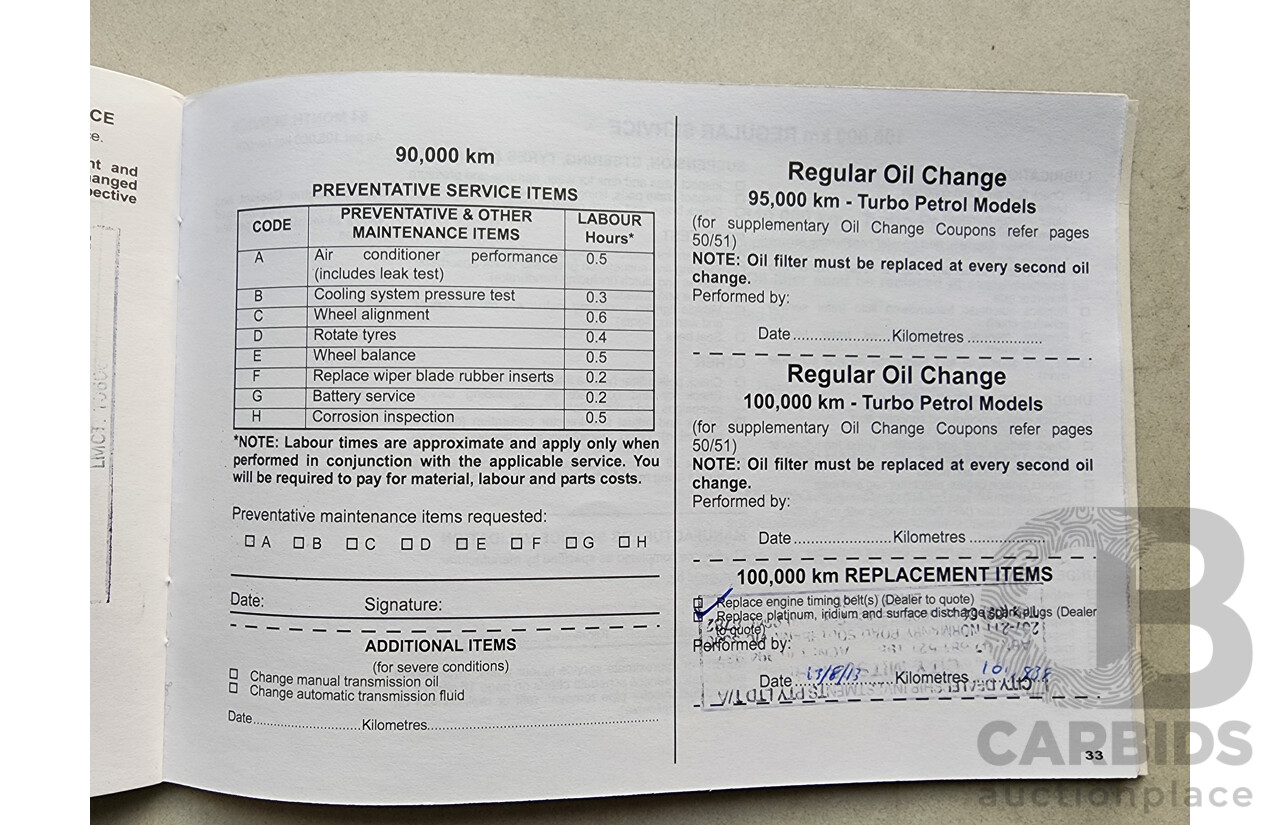 CE
e.
nt and
anged
pective
LMCT. 10606
90,000 km
PREVENTATIVE SERVICE ITEMS
CODE PREVENTATIVE & OTHER MAINTENANCE ITEMS LABOUR Hours*
A Air conditioner performance (includes leak test) 0.5
B Cooling system pressure test 0.3
C Wheel alignment 0.6
D Rotate tyres 0.4
E Wheel balance 0.5
F Replace wiper blade rubber inserts 0.2
G Battery service 0.2
H Corrosion inspection 0.5
*NOTE: Labour times are approximate and apply only when
performed in conjunction with the applicable service. You
will be required to pay for material, labour and parts costs.
Preventative maintenance items requested:
☐ A ☐ B ☐ C ☐ D ☐ E ☐ F ☐ G ☐ H
Date: Signature:
ADDITIONAL ITEMS
(for severe conditions)
☐ Change manual transmission oil
☐ Change automatic transmission fluid
Date........................Kilometres....................................................
Regular Oil Change
95,000 km - Turbo Petrol Models
(for supplementary Oil Change Coupons refer pages
50/51)
NOTE: Oil filter must be replaced at every second oil
change.
Performed by:
Date......................Kilometres .................
Regular Oil Change
100,000 km - Turbo Petrol Models
(for supplementary Oil Change Coupons refer pages
50/51)
NOTE: Oil filter must be replaced at every second oil
change.
Performed by:
Date......................Kilometres .................
100,000 km REPLACEMENT ITEMS
☐ Replace engine timing belt(s) (Dealer to quote)
Replace platinum, iridium and surface discharge spark plugs (Dealer
to quote)
Performed by:
Date 13/8/13 Kilometres 101 838
33
B
CARBIDS
auctionplace